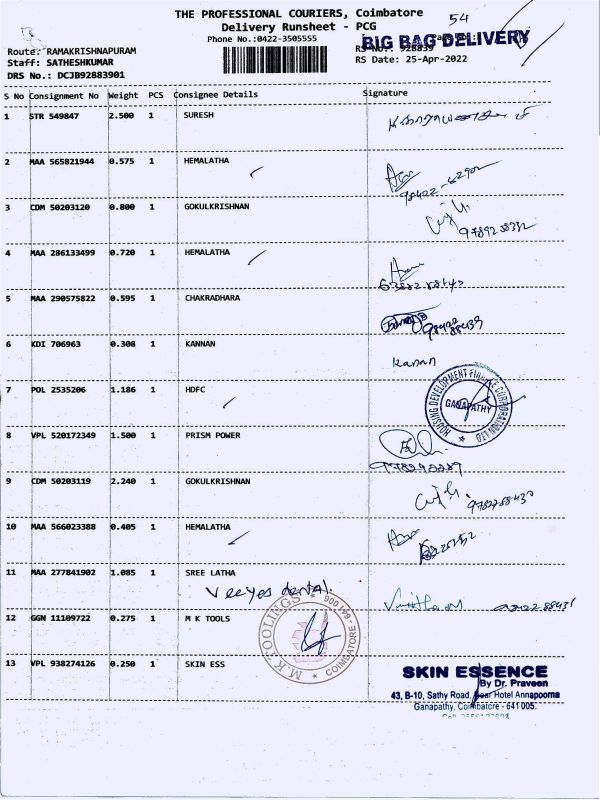 THE PROFESSIONAL COURIERS, Coimbatore
54
Delivery Runsheet - PCG
Phone No.:0422-3505555
BIG BAG DELIVERY
Route: RAMAKRISHNAPURAM
RS No.: 928839
Staff: SATHESHKUMAR
RS Date: 25-Apr-2022
DRS No.: DCJB92883901
S No Consignment No Weight PCS Consignee Details Signature
1 STR 549847 2.500 1 SURESH
2 MAA 565821944 0.575 1 HEMALATHA
3 CDM 50203120 0.800 1 GOKULKRISHNAN
4 MAA 286133499 0.720 1 HEMALATHA
5 MAA 290575822 0.595 1 CHAKRADHARA
6 KDI 706963 0.308 1 KANNAN Kannan
7 POL 2535206 1.186 1 HDFC
HOUSING DEVELOPMENT FINANCE CORPORATION LTD
GANAPATHY
8 VPL 520172349 1.500 1 PRISM POWER
9 CDM 50203119 2.240 1 GOKULKRISHNAN
10 MAA 566023388 0.405 1 HEMALATHA
11 MAA 277841902 1.085 1 SREE LATHA
Veeyes dental.
12 GGN 11109722 0.275 1 M K TOOLS
M.K TOOLINGS
COIMBATORE - 641 006
13 VPL 938274126 0.250 1 SKIN ESS
SKIN ESSENCE
By Dr. Praveen
43, B-10, Sathy Road, Near Hotel Annapoorna
Ganapathy, Coimbatore - 641 005.